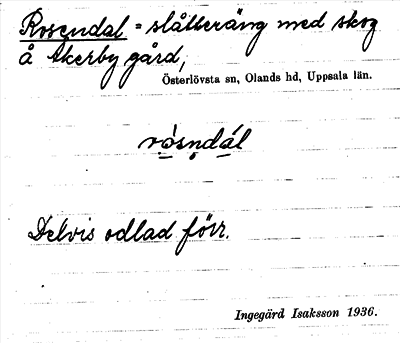 Rosendal = slåtteräng med skog
å Åkerby gård,
Österlövsta sn, Olands hd, Uppsala län.
rósndál
Delvis odlad förr.
Ingegärd Isaksson 1936.